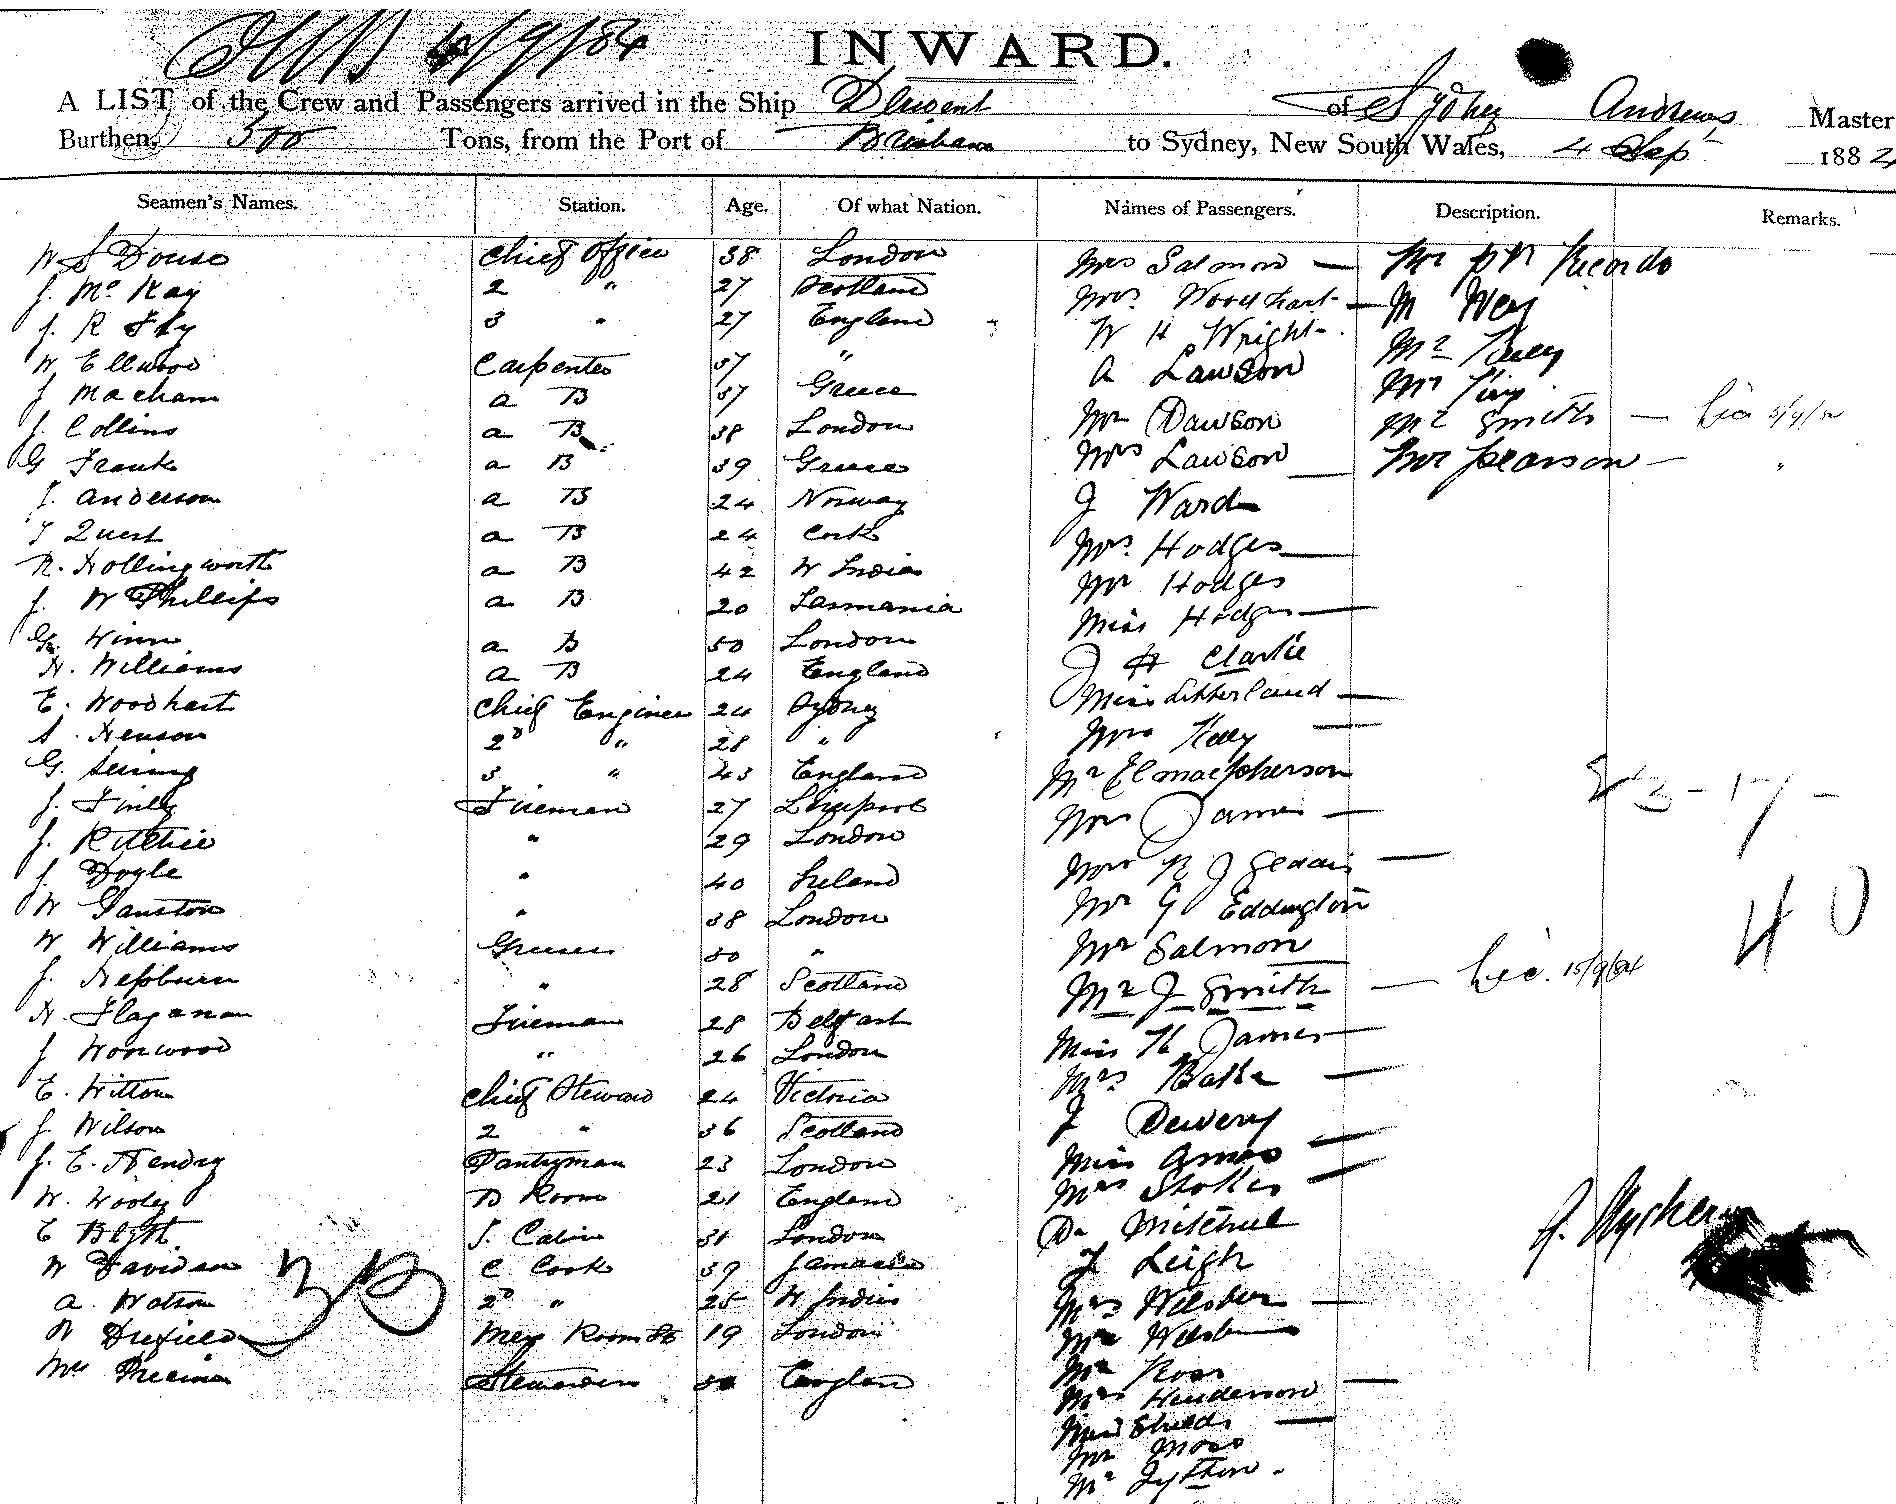 4/9/84
INWARD.
A LIST of the Crew and Passengers arrived in the Ship Derwent of Sydney Andrews Master
Burthen, 500 Tons, from the Port of Brisbane to Sydney, New South Wales, 4 Sep 1884
Seamen's Names. Station. Age. Of what Nation. Names of Passengers. Description. Remarks.
W S Douse Chief Office 38 London Mrs Salmon — Mr Ricardo
J. Mc Kay 2 " 27 Scotland Mrs Woodhart — M
J. R Fly 3 " 27 England W H Wright
W Ellwood Carpenter 37 " A Lawson Mr
J Macham a B 37 Greece Mr
J. Collins a B 38 London Mr Dawson Mr Smith —
G Frank a B 39 Greece Mrs Lawson — Mr Pearson — "
J. Anderson a B 24 Norway J Ward
J Quest a B 24 Cork Mrs. Hodges —
R. Hollingworth a B 42 W India Mr Hodges
J. W Phillips a B 20 Tasmania Miss Hodges —
G. Winn a B 50 London J H Clarke
H. Williams a B 24 England Miss Litherland —
E. Woodhart Chief Engineer 24 Sydney Mrs Kelly —
S. Henson 2d " 28 "
G. 3 " 43 England Mr E C Macpherson
J. Finly Fireman 27 Liverpool Mrs James —
J. Ritchie " 29 London
J. Doyle " 40 Ireland Mrs R J Geddis —
W Ganston " 38 London Mr G Eddington
W Williams Greaser 50 " Mr Salmon
J. Hepburn " 28 Scotland Mr J Smith — 15/9/84
H. Flaganan Fireman 28 Belfast
J Worwood " 26 London Miss H James —
E. Witton Chief Steward 24 Victoria Mrs —
J. Wilson 2 " 36 Scotland J Dewery
J. E. Hendry Pantryman 23 London Miss Ames —
W. Wooley B Room 21 England Mrs Stokes —
E Blyth S. Cabin 31 London Dr Mitchell
W Davidson C Cook 39 Jamaica J Leigh
A. Watson 2d " 25 W Indies Mrs —
Duffield Mess Room St 19 London Mr
Mrs Stewardess England Mr Ross
Mrs Henderson —
Miss Shields —
Mr Moss
Mr
40